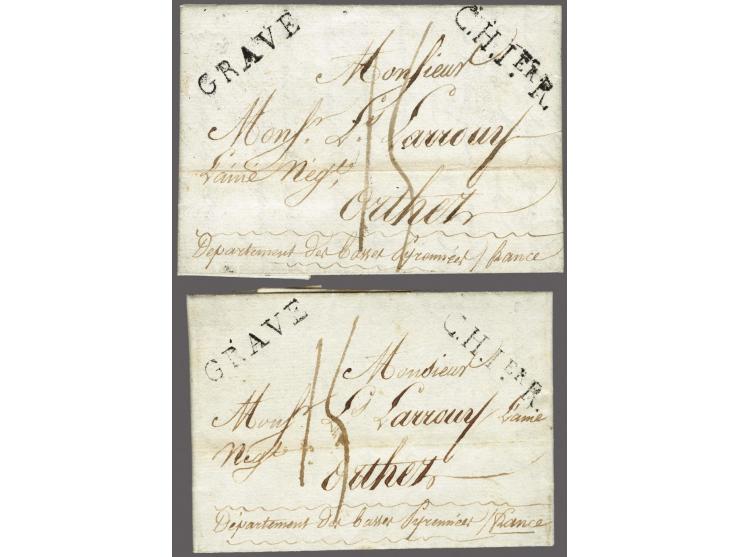 GRAVE
C.H.Ier R.
Monsieur
Monsr. Ls. Larrouy
L'ainé Négt.
Orthez
15
Département des basses Pyrennées / france
GRAVE
C.H.Ier R.
Monsieur
Monsr. Ls Larrouy L'ainé
Négt.
Orthez
15
Département des basses Pyrennées / france